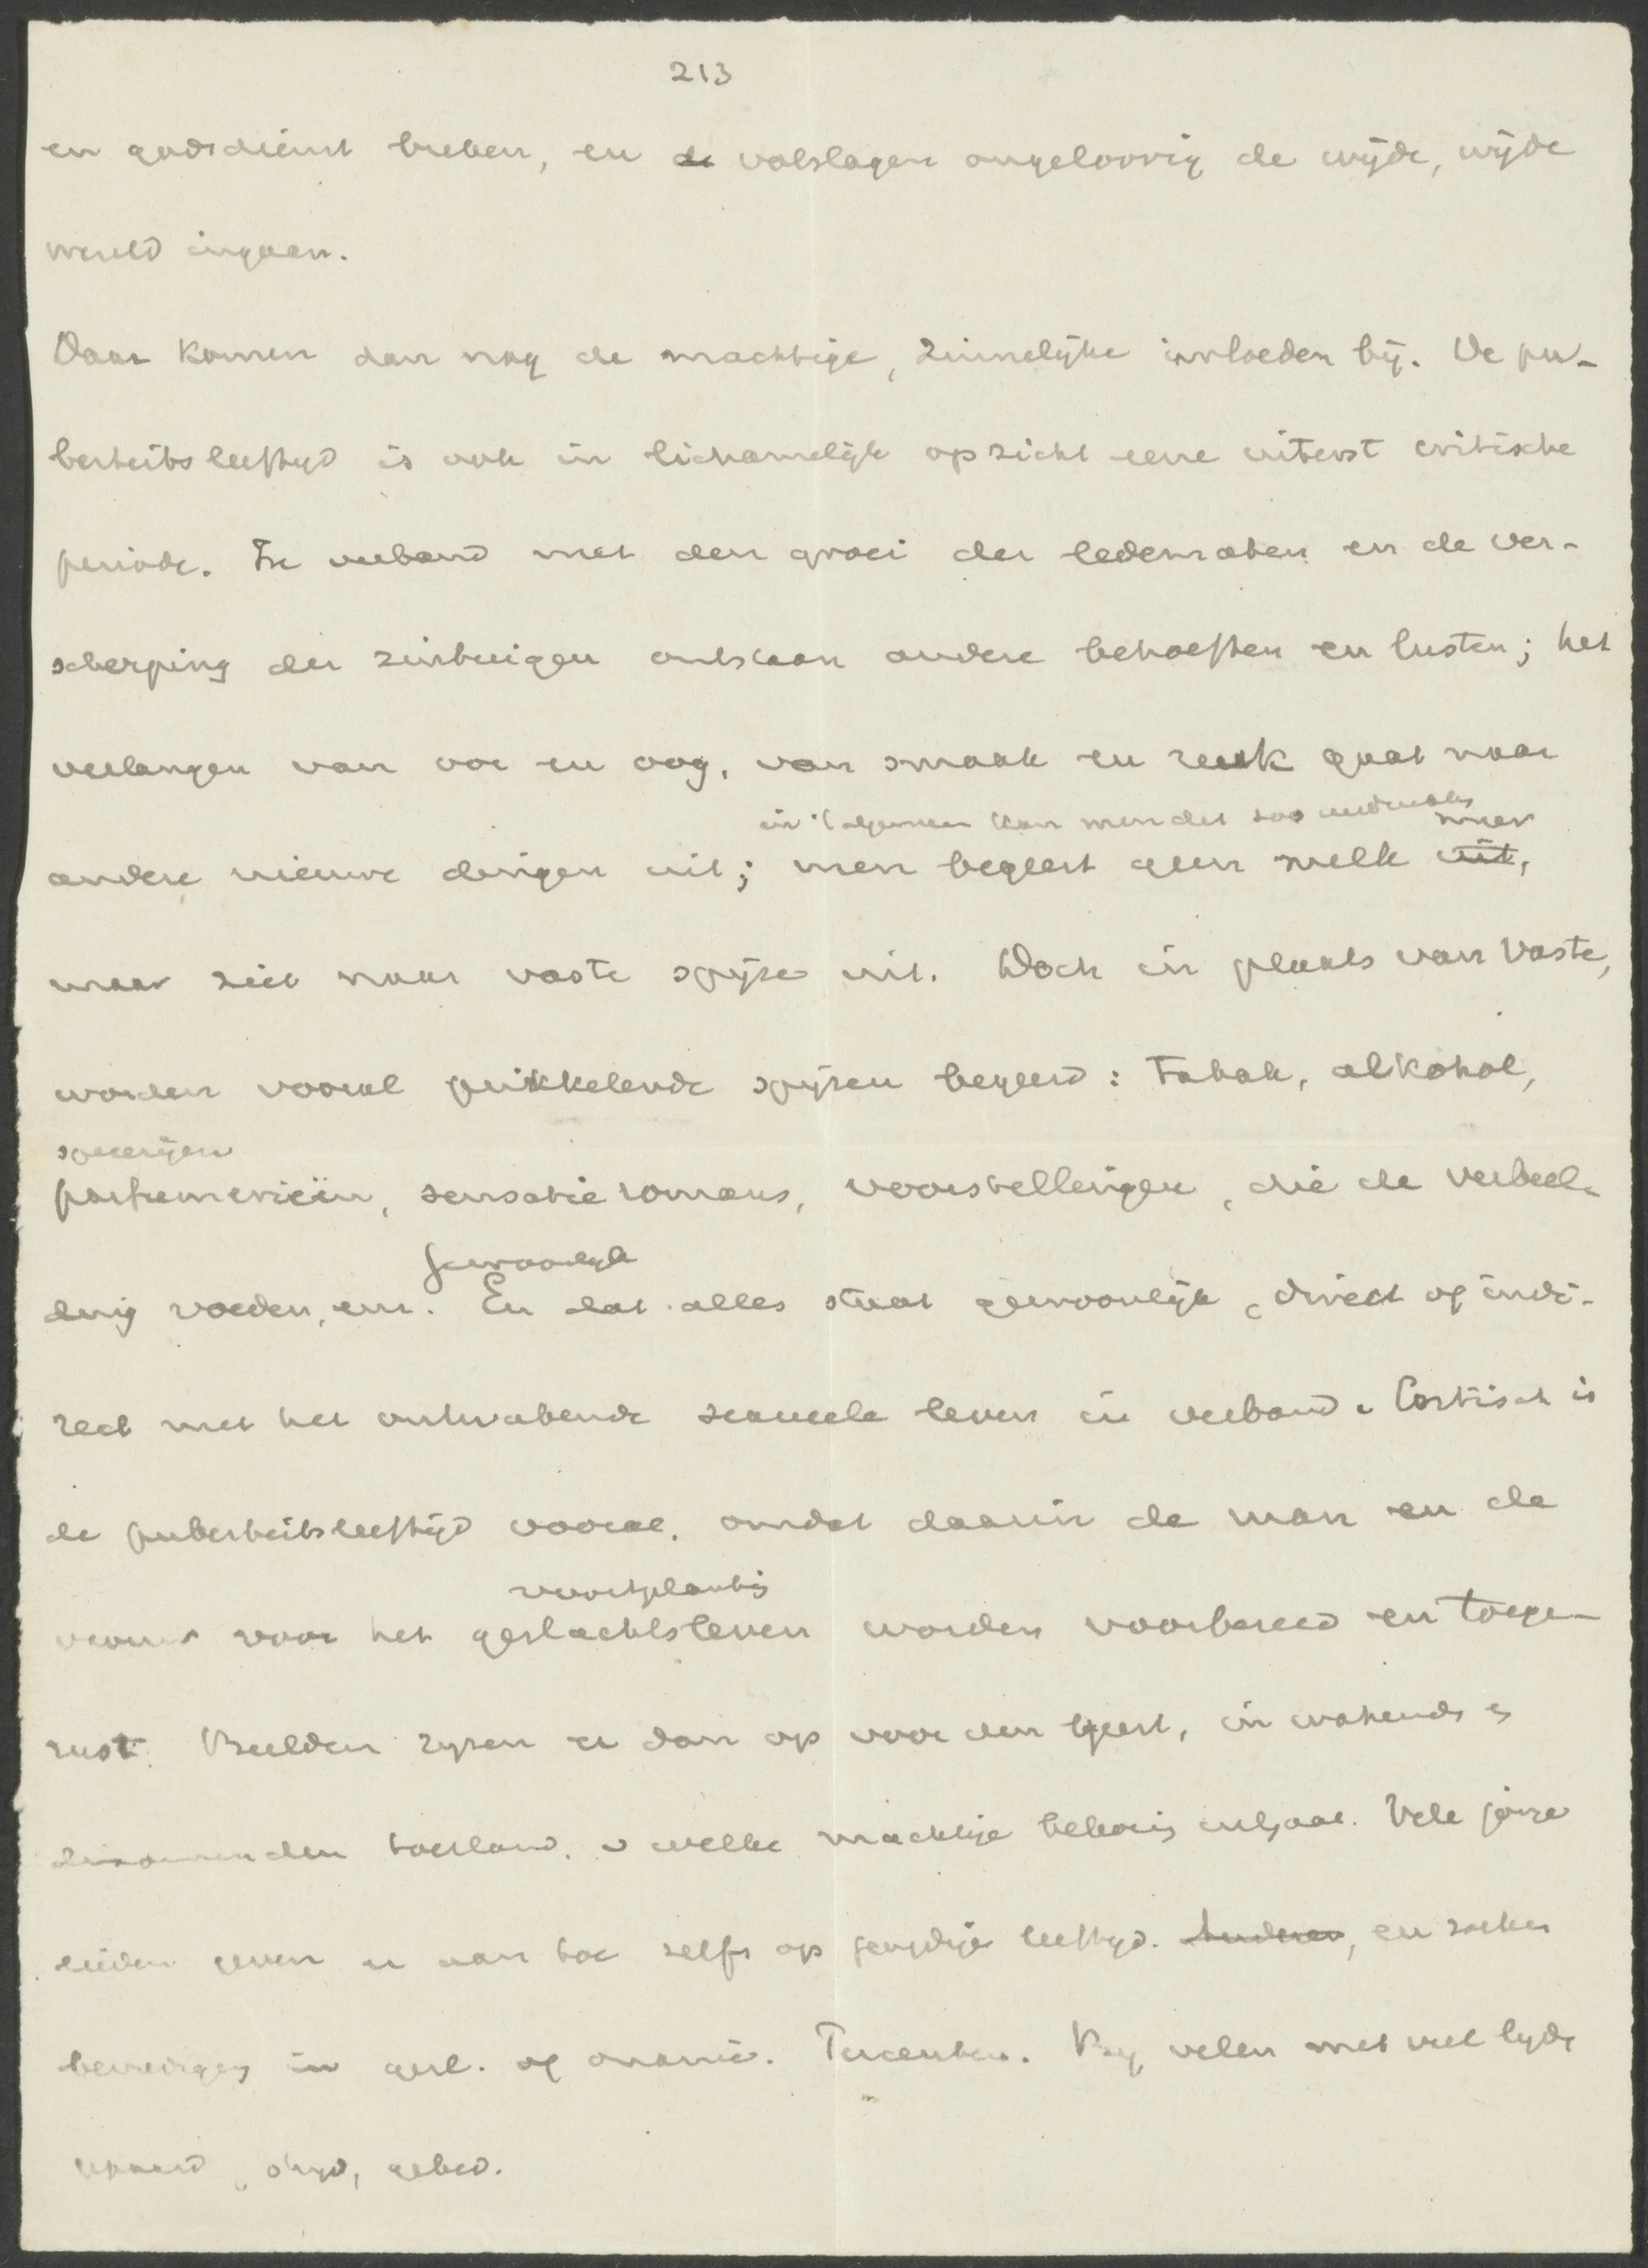 213
en godsdienst breken, en de volslagen ongeloovig de wijde, wijde
wereld ingaan.
Daar komen dan nog de machtige, zinnelijke invloeden bij. De pu-
berteitsleeftijd is ook in lichamelijk opzicht eene uiterst critische
periode. In verband met den groei der ledematen en de ver-
scherping der zintuigen ontstaan andere behoeften en lusten; het
verlangen van oor en oog, van smaak en reuk gaat naar
in 't algemeen kan men dit zoo uitdrukken
meer
andere nieuwe dingen uit; men begeert geen melk uit,
maar ziet naar vaste spijze uit. Doch in plaats van vaste,
worden vooral prikkelende spijzen begeerd: Tabak, alkohol,
specerijen
parfumerieën, sensatie romans, voorstellingen, die de verbeel-
gewoonlijk
ding voeden, enz. En dat alles staat gewoonlijk, direct of indi-
rect met het ontwakende sexueele leven in verband. Critisch is
de puberteitsleeftijd vooral, omdat daarin de man en de
voortplanting
vrouw voor het geslachtsleven worden voorbereid en toege-
rust. Beelden rijzen er dan op voor den geest, in wakenden
toestand, welke machtige bekoring uitgaat. Vele jonge
lieden geven er aan toe zelfs op jeugdige leeftijd. Anderen, en zoeken
bevrediging in gesl. of onanie. Bij velen met veel strijd
gepaard, strijd, gebed.